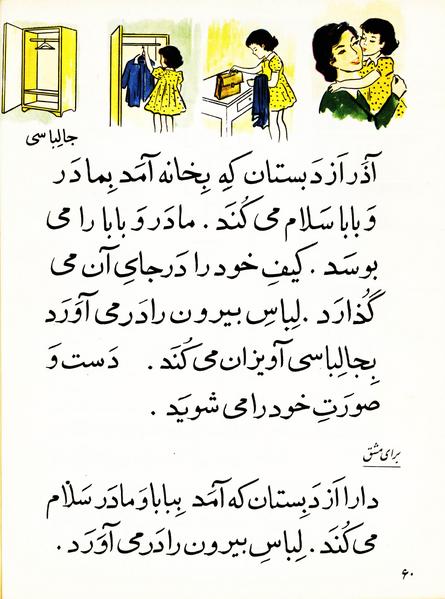 جالباسی
آذَر اَز دَبستان کهِ بِخانه آمَد بِمادَر
وَ بابا سَلام می کُنَد . مادَر وَ بابا را می
بوسَد . کیفِ خود را دَر جایِ آن می
گُذارَد . لِباسِ بیرون را دَر می آوَرَد
بِجالِباسی آویزان می کُنَد . دَست و
صورَتِ خود را می شویَد .
برای مشق
دارا اَز دَبِستان که آمَد بِبابا وَ مادَر سَلام
می کُنَد . لِباسِ بیرون را دَر می آوَرَد .
۶۰